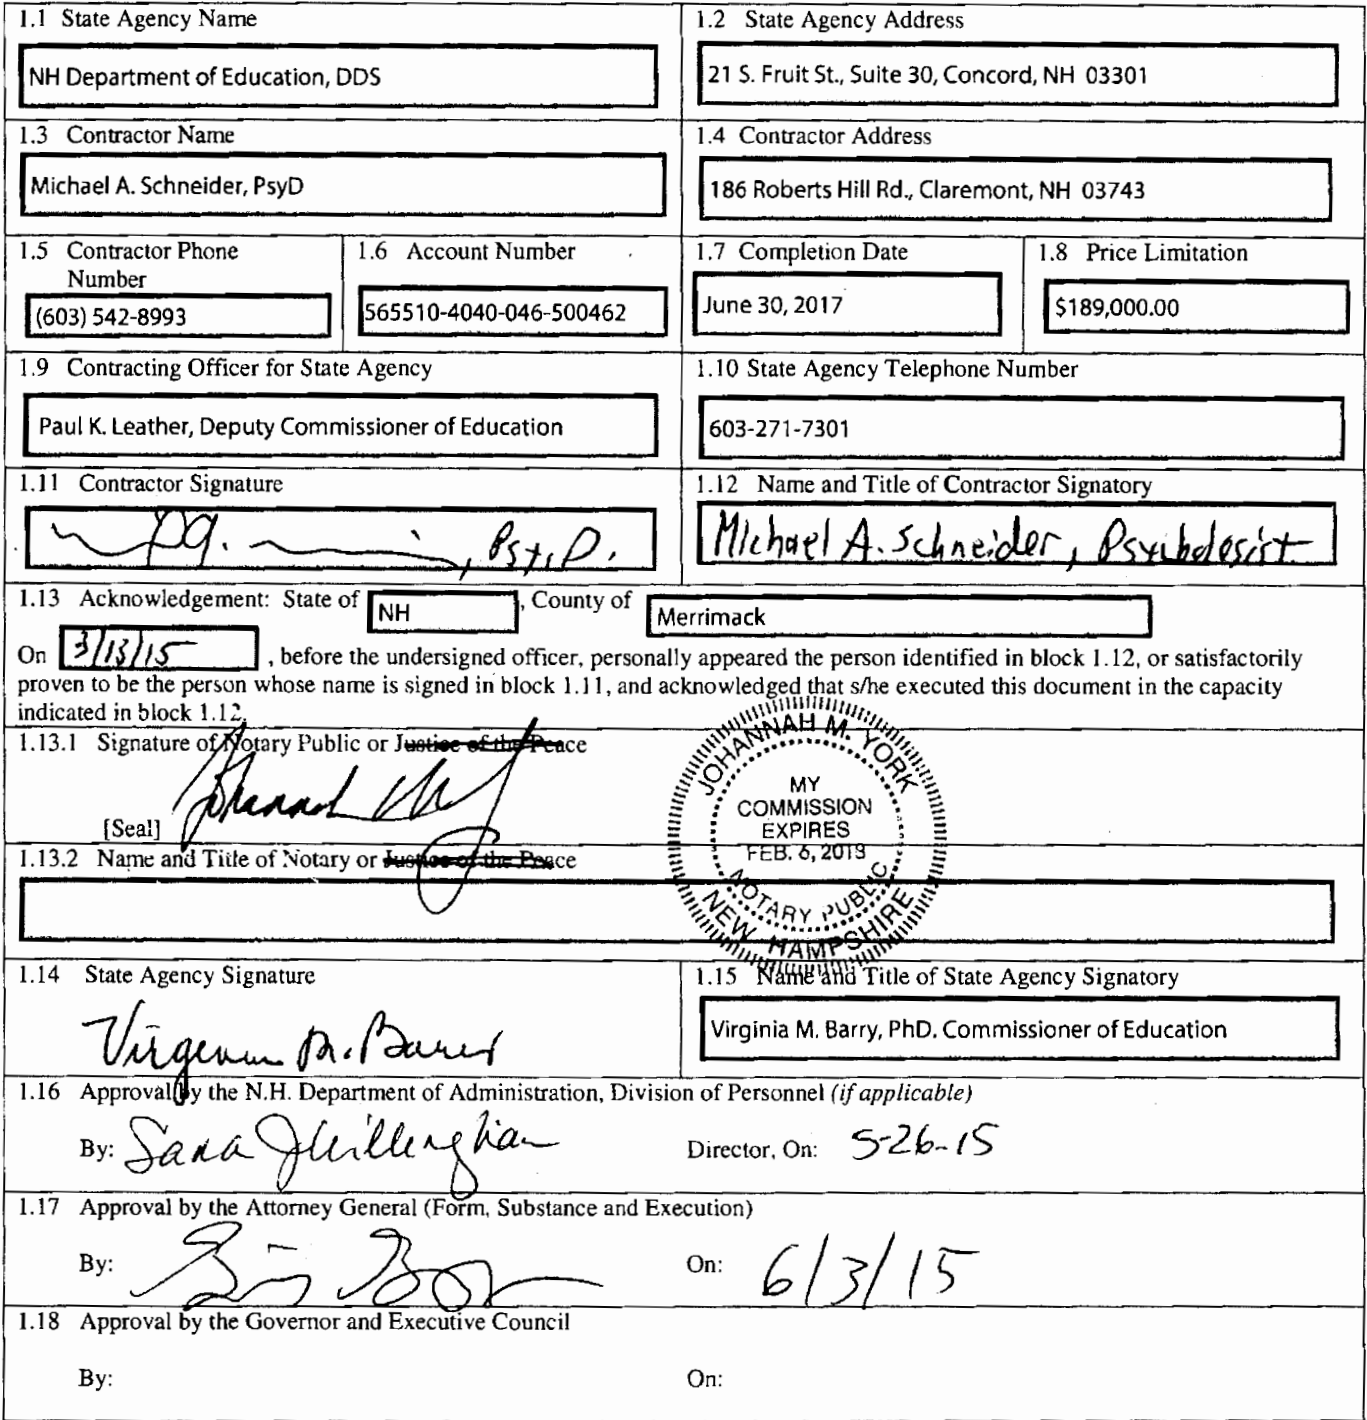 1.1 State Agency Name
NH Department of Education, DDS
1.2 State Agency Address
21 S. Fruit St., Suite 30, Concord, NH 03301
1.3 Contractor Name
Michael A. Schneider, PsyD
1.4 Contractor Address
186 Roberts Hill Rd., Claremont, NH 03743
1.5 Contractor Phone
Number
(603) 542-8993
1.6 Account Number
565510-4040-046-500462
1.7 Completion Date
June 30, 2017
1.8 Price Limitation
$189,000.00
1.9 Contracting Officer for State Agency
Paul K. Leather, Deputy Commissioner of Education
1.10 State Agency Telephone Number
603-271-7301
1.11 Contractor Signature
, Psy.D.
1.12 Name and Title of Contractor Signatory
Michael A. Schneider, Psychologist
1.13 Acknowledgement: State of NH, County of Merrimack
On 3/13/15, before the undersigned officer, personally appeared the person identified in block 1.12, or satisfactorily
proven to be the person whose name is signed in block 1.11, and acknowledged that s/he executed this document in the capacity
indicated in block 1.12.
1.13.1 Signature of Notary Public or Justice of the Peace
[Seal]
JOHANNAH M. YORK
MY
COMMISSION
EXPIRES
FEB. 6, 2018
NOTARY PUBLIC
NEW HAMPSHIRE
1.13.2 Name and Title of Notary or Justice of the Peace
1.14 State Agency Signature
Virginia M. Barry
1.15 Name and Title of State Agency Signatory
Virginia M. Barry, PhD. Commissioner of Education
1.16 Approval by the N.H. Department of Administration, Division of Personnel (if applicable)
By: Sara J Willingham Director, On: 5-26-15
1.17 Approval by the Attorney General (Form, Substance and Execution)
By: On: 6/3/15
1.18 Approval by the Governor and Executive Council
By: On: